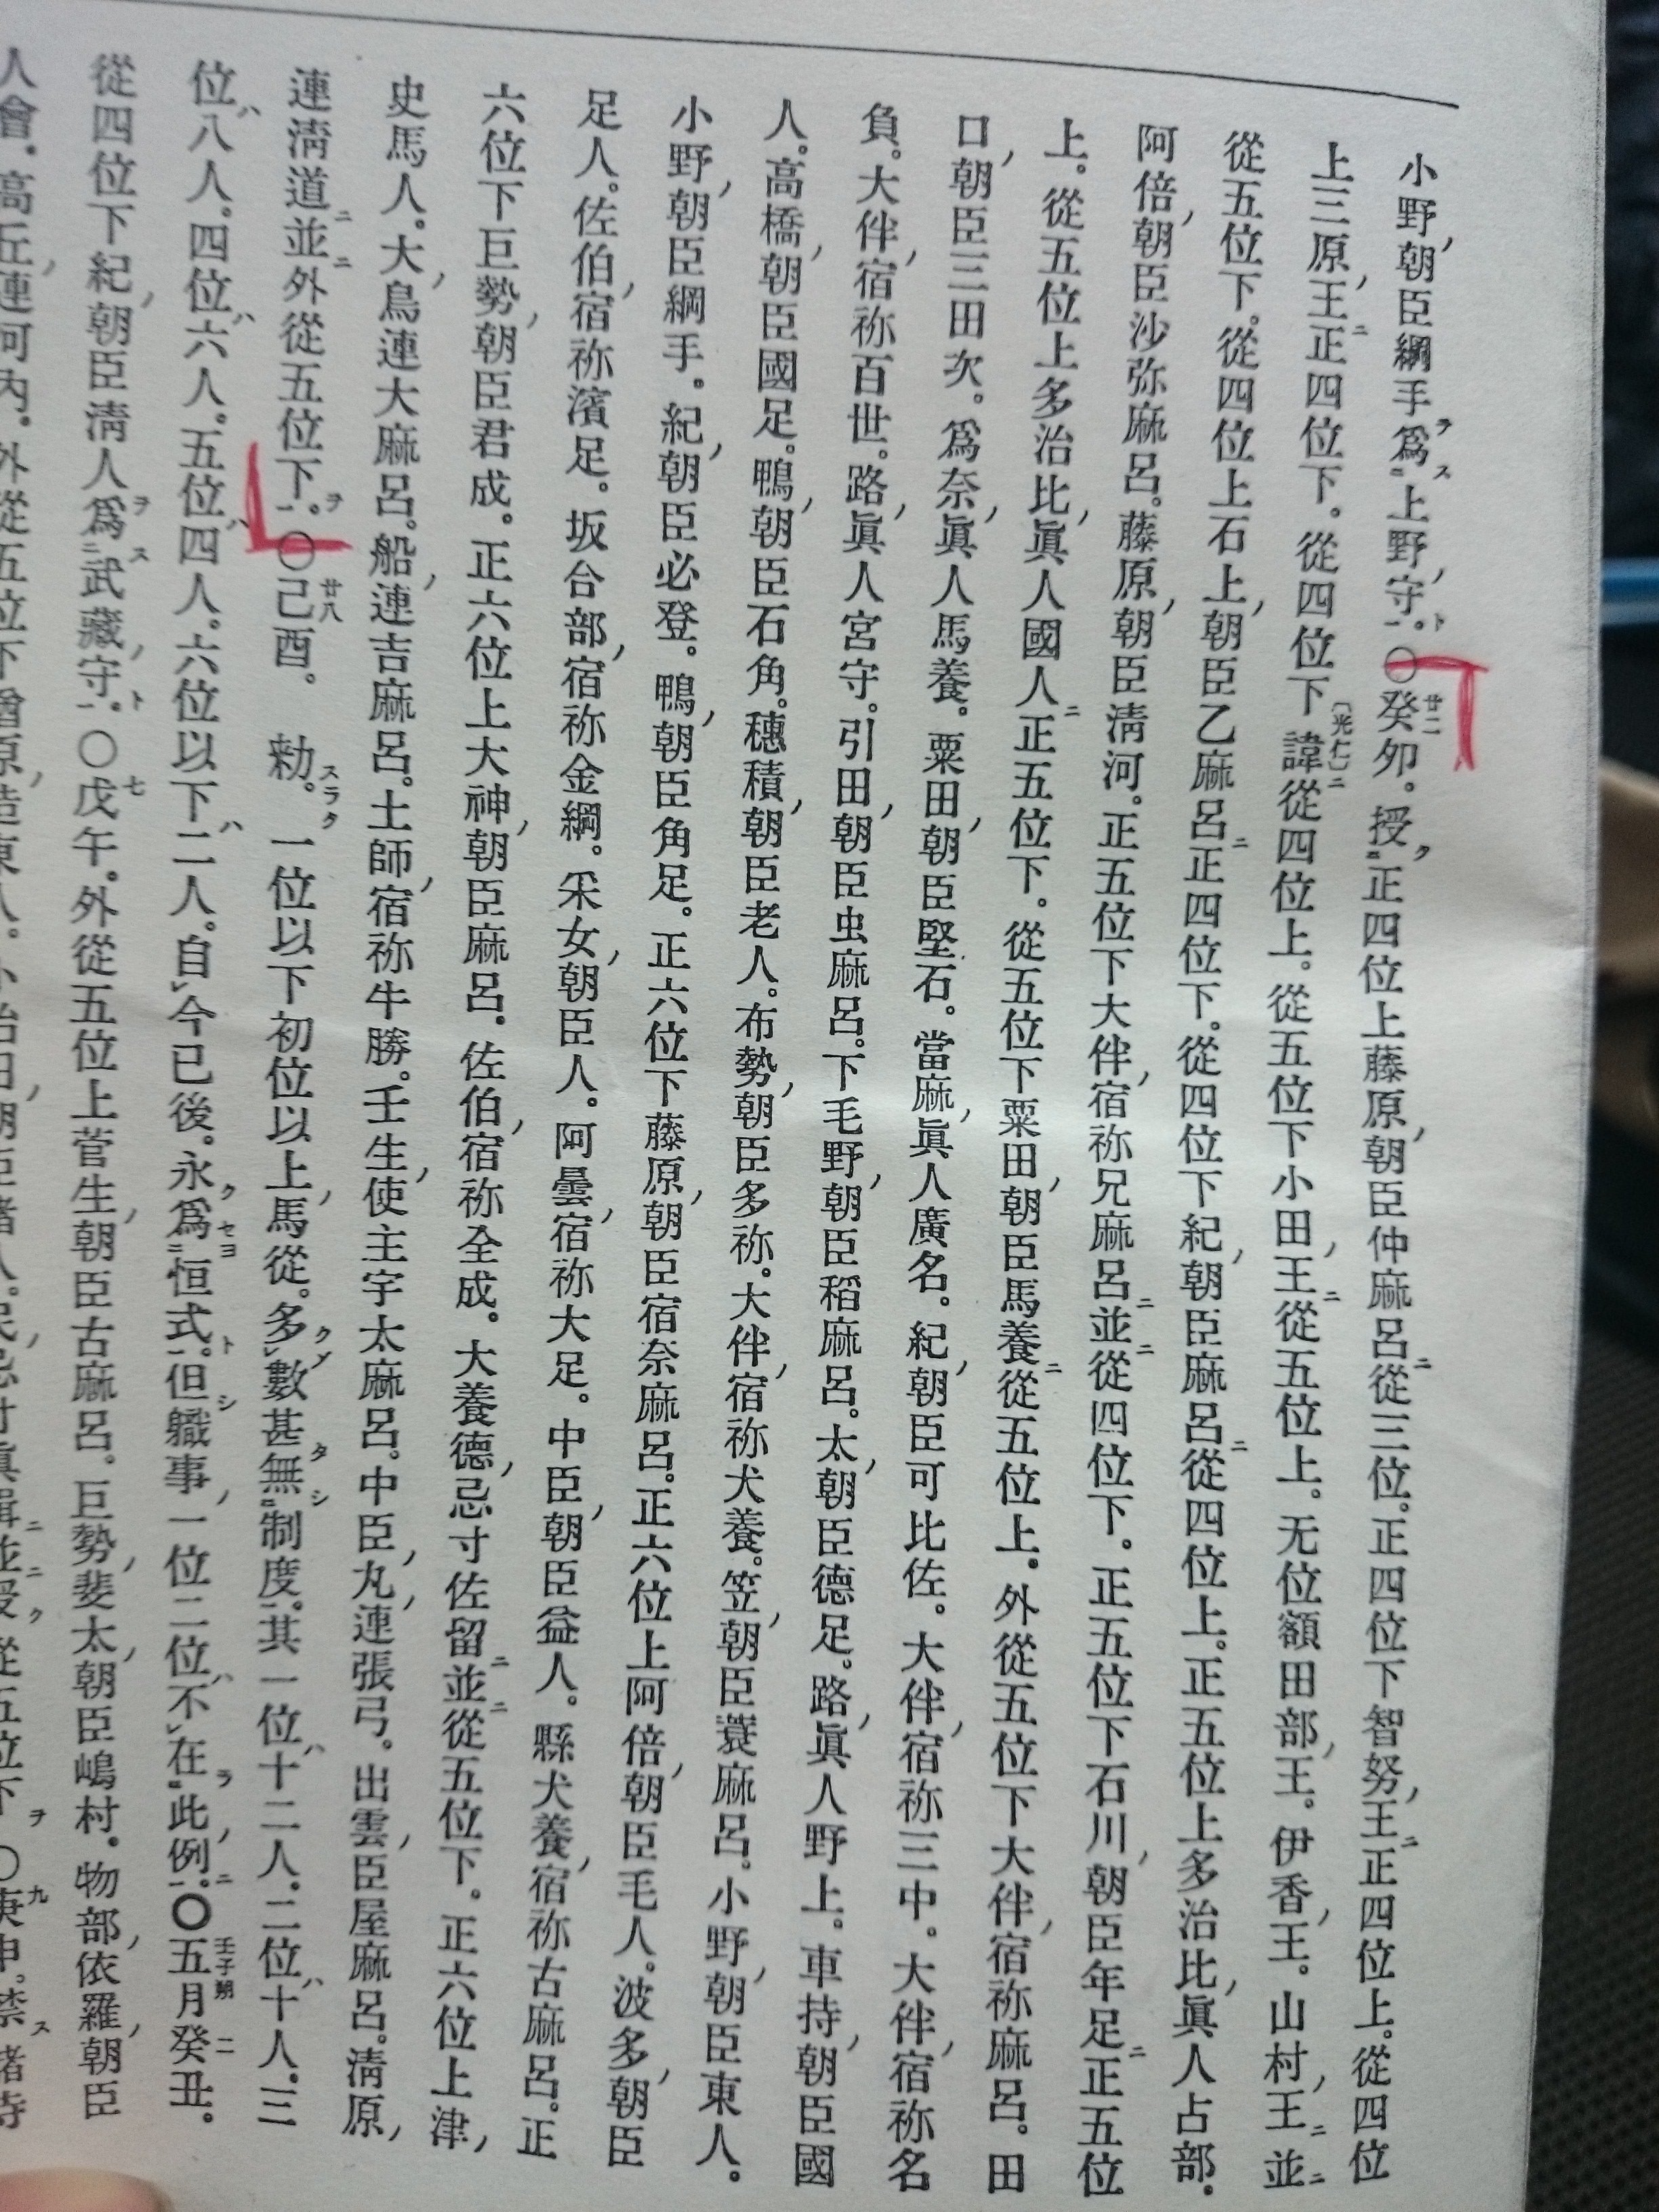 小野朝臣綱手爲上野守。〇癸卯。授正四位上藤原朝臣仲麻呂從三位。正四位下智努王正四位上。從四位
上三原王正四位下。從四位下諱從四位上。從五位下小田王從五位上。无位額田部王。伊香王。山村王並
從五位下。從四位上石上朝臣乙麻呂正四位下。從四位下紀朝臣麻呂從四位上。正五位上多治比眞人占部。
阿倍朝臣沙弥麻呂。藤原朝臣淸河。正五位下大伴宿祢兄麻呂並從四位下。正五位下石川朝臣年足正五位
上。從五位上多治比眞人國人正五位下。從五位下粟田朝臣馬養從五位上。外從五位下大伴宿祢麻呂。田
口朝臣三田次。爲奈眞人馬養。粟田朝臣堅石。當麻眞人廣名。紀朝臣可比佐。大伴宿祢三中。大伴宿祢名
負。大伴宿祢百世。路眞人宮守。引田朝臣虫麻呂。下毛野朝臣稻麻呂。太朝臣德足。路眞人野上。車持朝臣國
人。高橋朝臣國足。鴨朝臣石角。穗積朝臣老人。布勢朝臣多祢。大伴宿祢犬養。笠朝臣蓑麻呂。小野朝臣東人。
小野朝臣綱手。紀朝臣必登。鴨朝臣角足。正六位下藤原朝臣宿奈麻呂。正六位上阿倍朝臣毛人。波多朝臣
足人。佐伯宿祢濱足。坂合部宿祢金綱。釆女朝臣人。阿曇宿祢大足。中臣朝臣益人。縣犬養宿祢古麻呂。正
六位下巨勢朝臣君成。正六位上大神朝臣麻呂。佐伯宿祢全成。大養德忌寸佐留並從五位下。正六位上津
史馬人。大鳥連大麻呂。船連吉麻呂。土師宿祢牛勝。壬生使主宇太麻呂。中臣丸連張弓。出雲臣屋麻呂。淸原
連淸道並外從五位下。〇己酉。勅。一位以下初位以上馬從。多數甚無制度。其一位十二人。二位十人。三
位八人。四位六人。五位四人。六位以下二人。自今已後。永爲恒式。但軄事一位二位不在此例。〇五月癸丑。
從四位下紀朝臣淸人爲武藏守。〇戊午。外從五位上菅生朝臣古麻呂。巨勢斐太朝臣嶋村。物部依羅朝臣
人會。高丘連河內。外從五位下